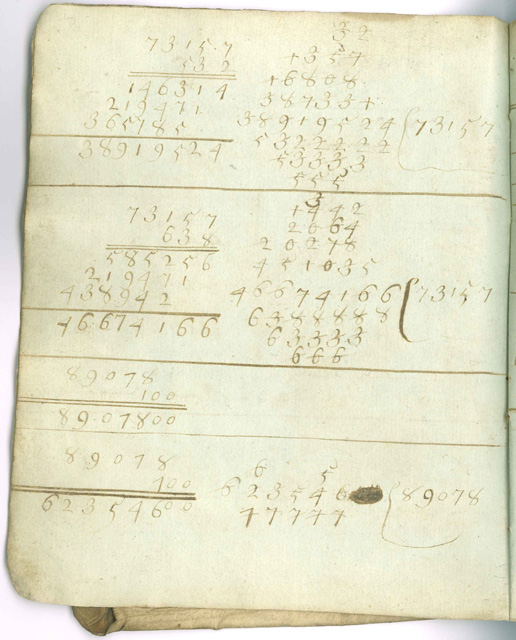 73157
532
146314
219471
365785
38919524
32
1357
16808
38919524 (73157
5322222
53333
555
73157
638
585256
219471
438942
46674166
3
1442
2664
20278
451035
46674166 (73157
6388888
63333
666
89078
100
8907800
89078
700
62354600
6 5
623546 (89078
77777